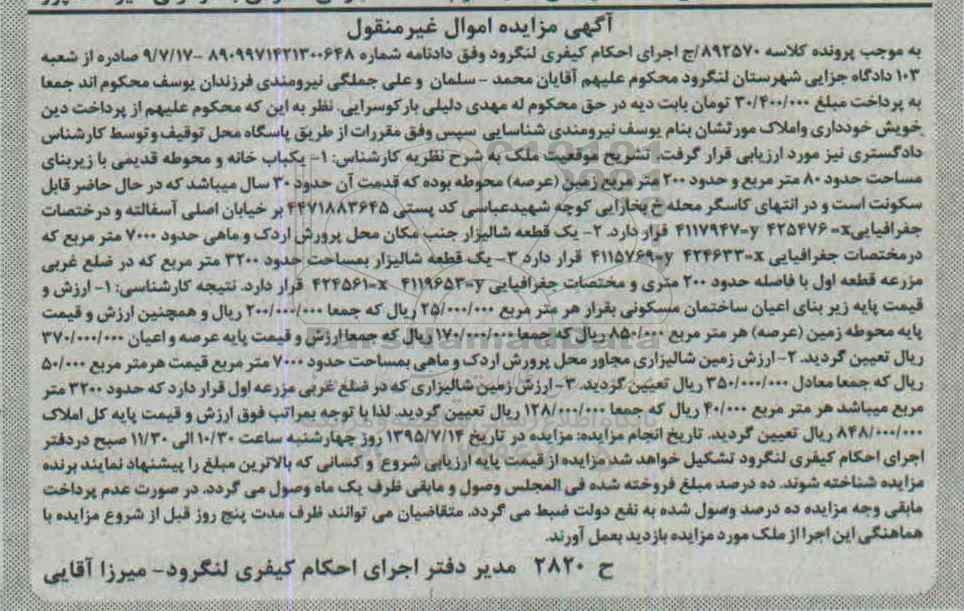 آگهی مزایده اموال غیرمنقول
به موجب پرونده کلاسه ۸۹۲۵۷۰/ج اجرای احکام کیفری لنگرود وفق دادنامه شماره ۸۹۰۹۹۷۱۴۲۱۳۰۰۶۴۸ -۹/۷/۱۷ صادره از شعبه
۱۰۳ دادگاه جزایی شهرستان لنگرود محکوم علیهم آقایان محمد - سلمان و علی جملگی نیرومندی فرزندان یوسف محکوم اند جمعا
به پرداخت مبلغ ۳۰/۴۰۰/۰۰۰ تومان بابت دیه در حق محکوم له مهدی دلیلی بارکوسرایی. نظر به این که محکوم علیهم از پرداخت دین
خویش خودداری واملاک مورثشان بنام یوسف نیرومندی شناسایی سپس وفق مقررات از طریق پاسگاه محل توقیف وتوسط کارشناس
دادگستری نیز مورد ارزیابی قرار گرفت. تشریح موقعیت ملک به شرح نظریه کارشناس: ۱- یکباب خانه و محوطه قدیمی با زیربنای
مساحت حدود ۸۰ متر مربع و حدود ۲۰۰ متر مربع زمین (عرصه) محوطه بوده که قدمت آن حدود ۳۰ سال میباشد که در حال حاضر قابل
سکونت است و در انتهای کاسگر محله خ بخارایی کوچه شهیدعباسی کد پستی ۴۴۷۱۸۸۳۶۴۵ بر خیابان اصلی آسفالته و درختصات
جغرافیاییx=۴۲۵۴۷۶ y=۴۱۱۷۹۴۷ قرار دارد. ۲- یک قطعه شالیزار جنب مکان محل پرورش اردک و ماهی حدود ۷۰۰۰ متر مربع که
درمختصات جغرافیایی x=۴۲۴۶۳۳ y=۴۱۱۵۷۶۹ قرار دارد ۳- یک قطعه شالیزار بمساحت حدود ۳۲۰۰ متر مربع که در ضلع غربی
مزرعه قطعه اول با فاصله حدود ۲۰۰ متری و مختصات جغرافیایی y=۴۱۱۹۶۵۳ x=۴۲۴۵۶۱ قرار دارد. نتیجه کارشناسی: ۱- ارزش و
قیمت پایه زیر بنای اعیان ساختمان مسکونی بقرار هر متر مربع ۲۵/۰۰۰/۰۰۰ ریال که جمعا ۲۰۰/۰۰۰/۰۰۰ ریال و همچنین ارزش و قیمت
پایه محوطه زمین (عرصه) هر متر مربع ۸۵۰/۰۰۰ ریال که جمعا ۱۷۰/۰۰۰/۰۰۰ ریال که جمعا ارزش و قیمت پایه عرصه و اعیان ۳۷۰/۰۰۰/۰۰۰
ریال تعیین گردید. ۲- ارزش زمین شالیزاری مجاور محل پرورش اردک و ماهی بمساحت حدود ۷۰۰۰ متر مربع قیمت هرمتر مربع ۵۰/۰۰۰
ریال که جمعا معادل ۳۵۰/۰۰۰/۰۰۰ ریال تعیین گردید. ۳- ارزش زمین شالیزاری که در ضلع غربی مزرعه اول قرار دارد که حدود ۳۲۰۰ متر
مربع میباشد هر متر مربع ۴۰/۰۰۰ ریال که جمعا ۱۲۸/۰۰۰/۰۰۰ ریال تعیین گردید. لذا با توجه بمراتب فوق ارزش و قیمت پایه کل املاک
۸۴۸/۰۰۰/۰۰۰ ریال تعیین گردید. تاریخ انجام مزایده: مزایده در تاریخ ۱۳۹۵/۷/۱۴ روز چهارشنبه ساعت ۱۰/۳۰ الی ۱۱/۳۰ صبح دردفتر
اجرای احکام کیفری لنگرود تشکیل خواهد شد مزایده از قیمت پایه ارزیابی شروع و کسانی که بالاترین مبلغ را پیشنهاد نمایند برنده
مزایده شناخته شوند. ده درصد مبلغ فروخته شده فی المجلس وصول و مابقی ظرف یک ماه وصول می گردد. در صورت عدم پرداخت
مابقی وجه مزایده ده درصد وصول شده به نفع دولت ضبط می گردد. متقاضیان می توانند ظرف مدت پنج روز قبل از شروع مزایده با
هماهنگی این اجرا از ملک مورد مزایده بازدید بعمل آورند.
ح ۲۸۲۰ مدیر دفتر اجرای احکام کیفری لنگرود- میرزا آقایی